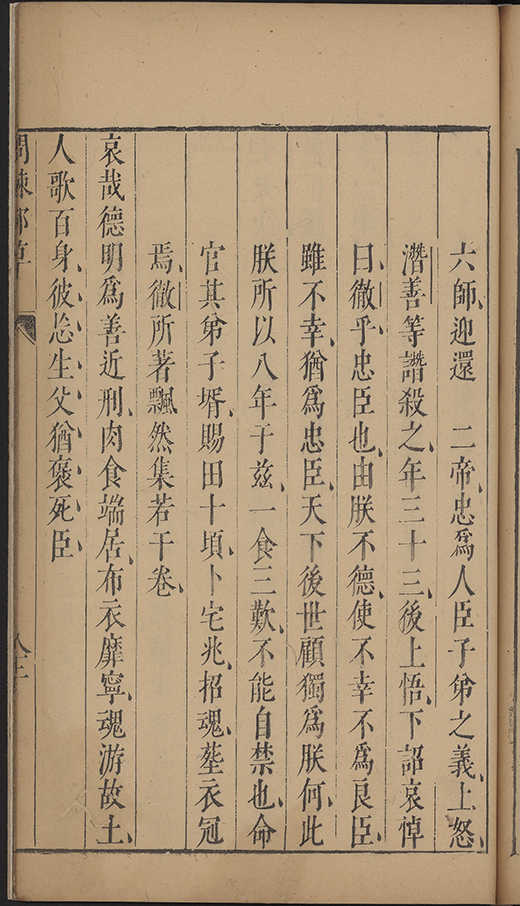 六師迎還　二帝忠爲人臣子弟之義上怒
潛善等譖殺之年三十三後上悟下詔哀悼
曰徹乎忠臣也由朕不德使不幸不爲良臣
雖不幸猶爲忠臣天下後世顧獨爲朕何此
朕所以八年于兹一食三歎不能自禁也命
官其弟子壻賜田十頃卜宅兆招魂塟衣冠
焉徹所著飄然集若干卷
哀哉德明爲善近刑肉食端居布衣靡寧魂游故土
人歌百身彼忩生父猶褒死臣